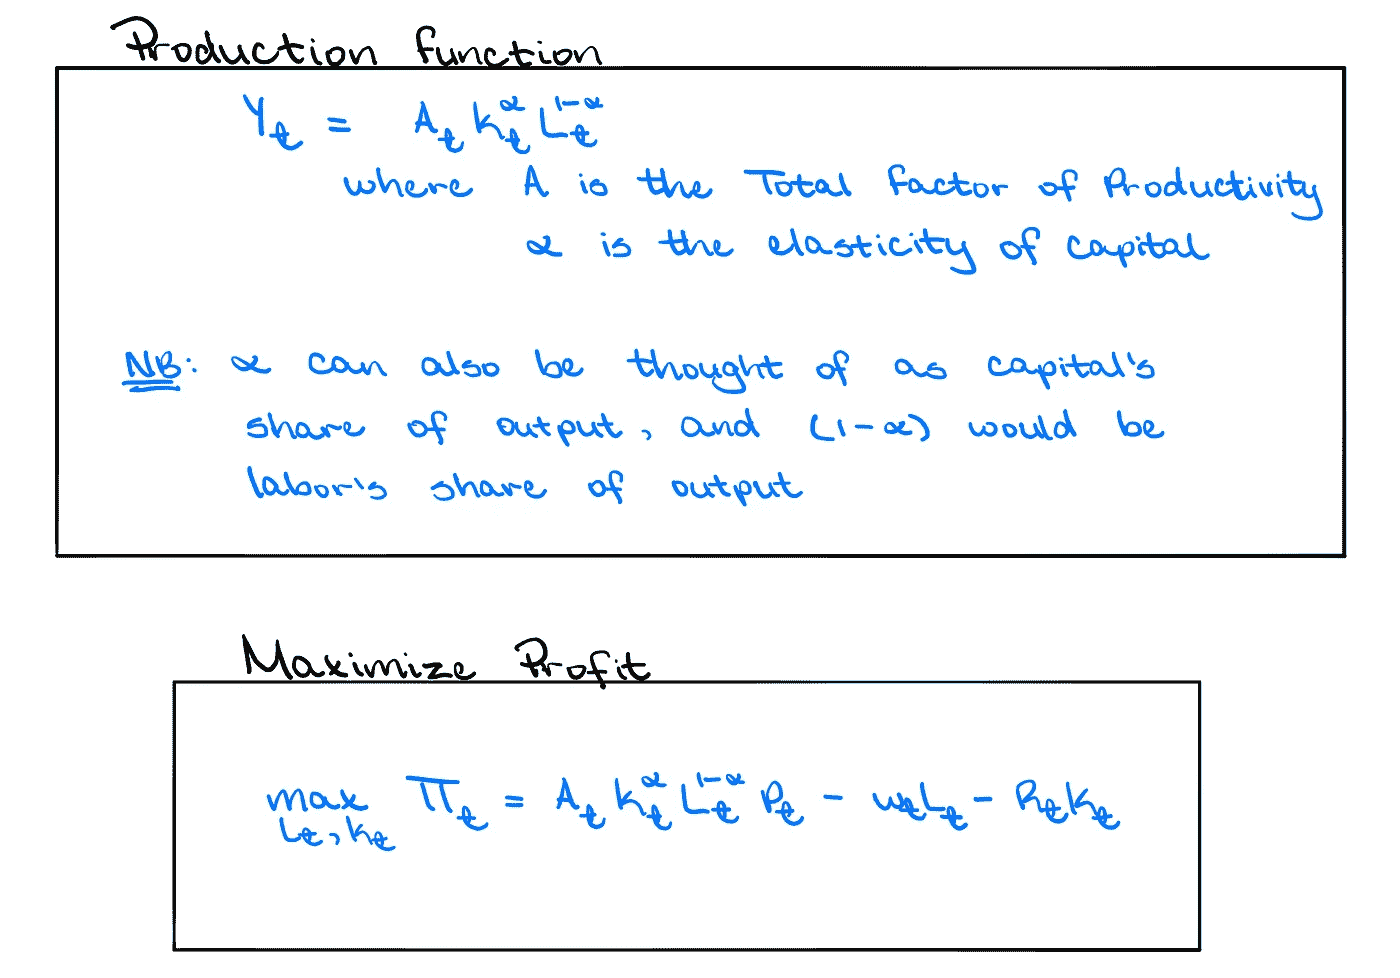 Production function
Y_t = A_t K_t^α L_t^{1-α}
where A is the Total factor of Productivity
α is the elasticity of capital
NB: α can also be thought of as capital's
share of output, and (1-α) would be
labor's share of output
Maximize Profit
max Π_t = A_t K_t^α L_t^{1-α} P_t - w_t L_t - R_t K_t
L_t, K_t